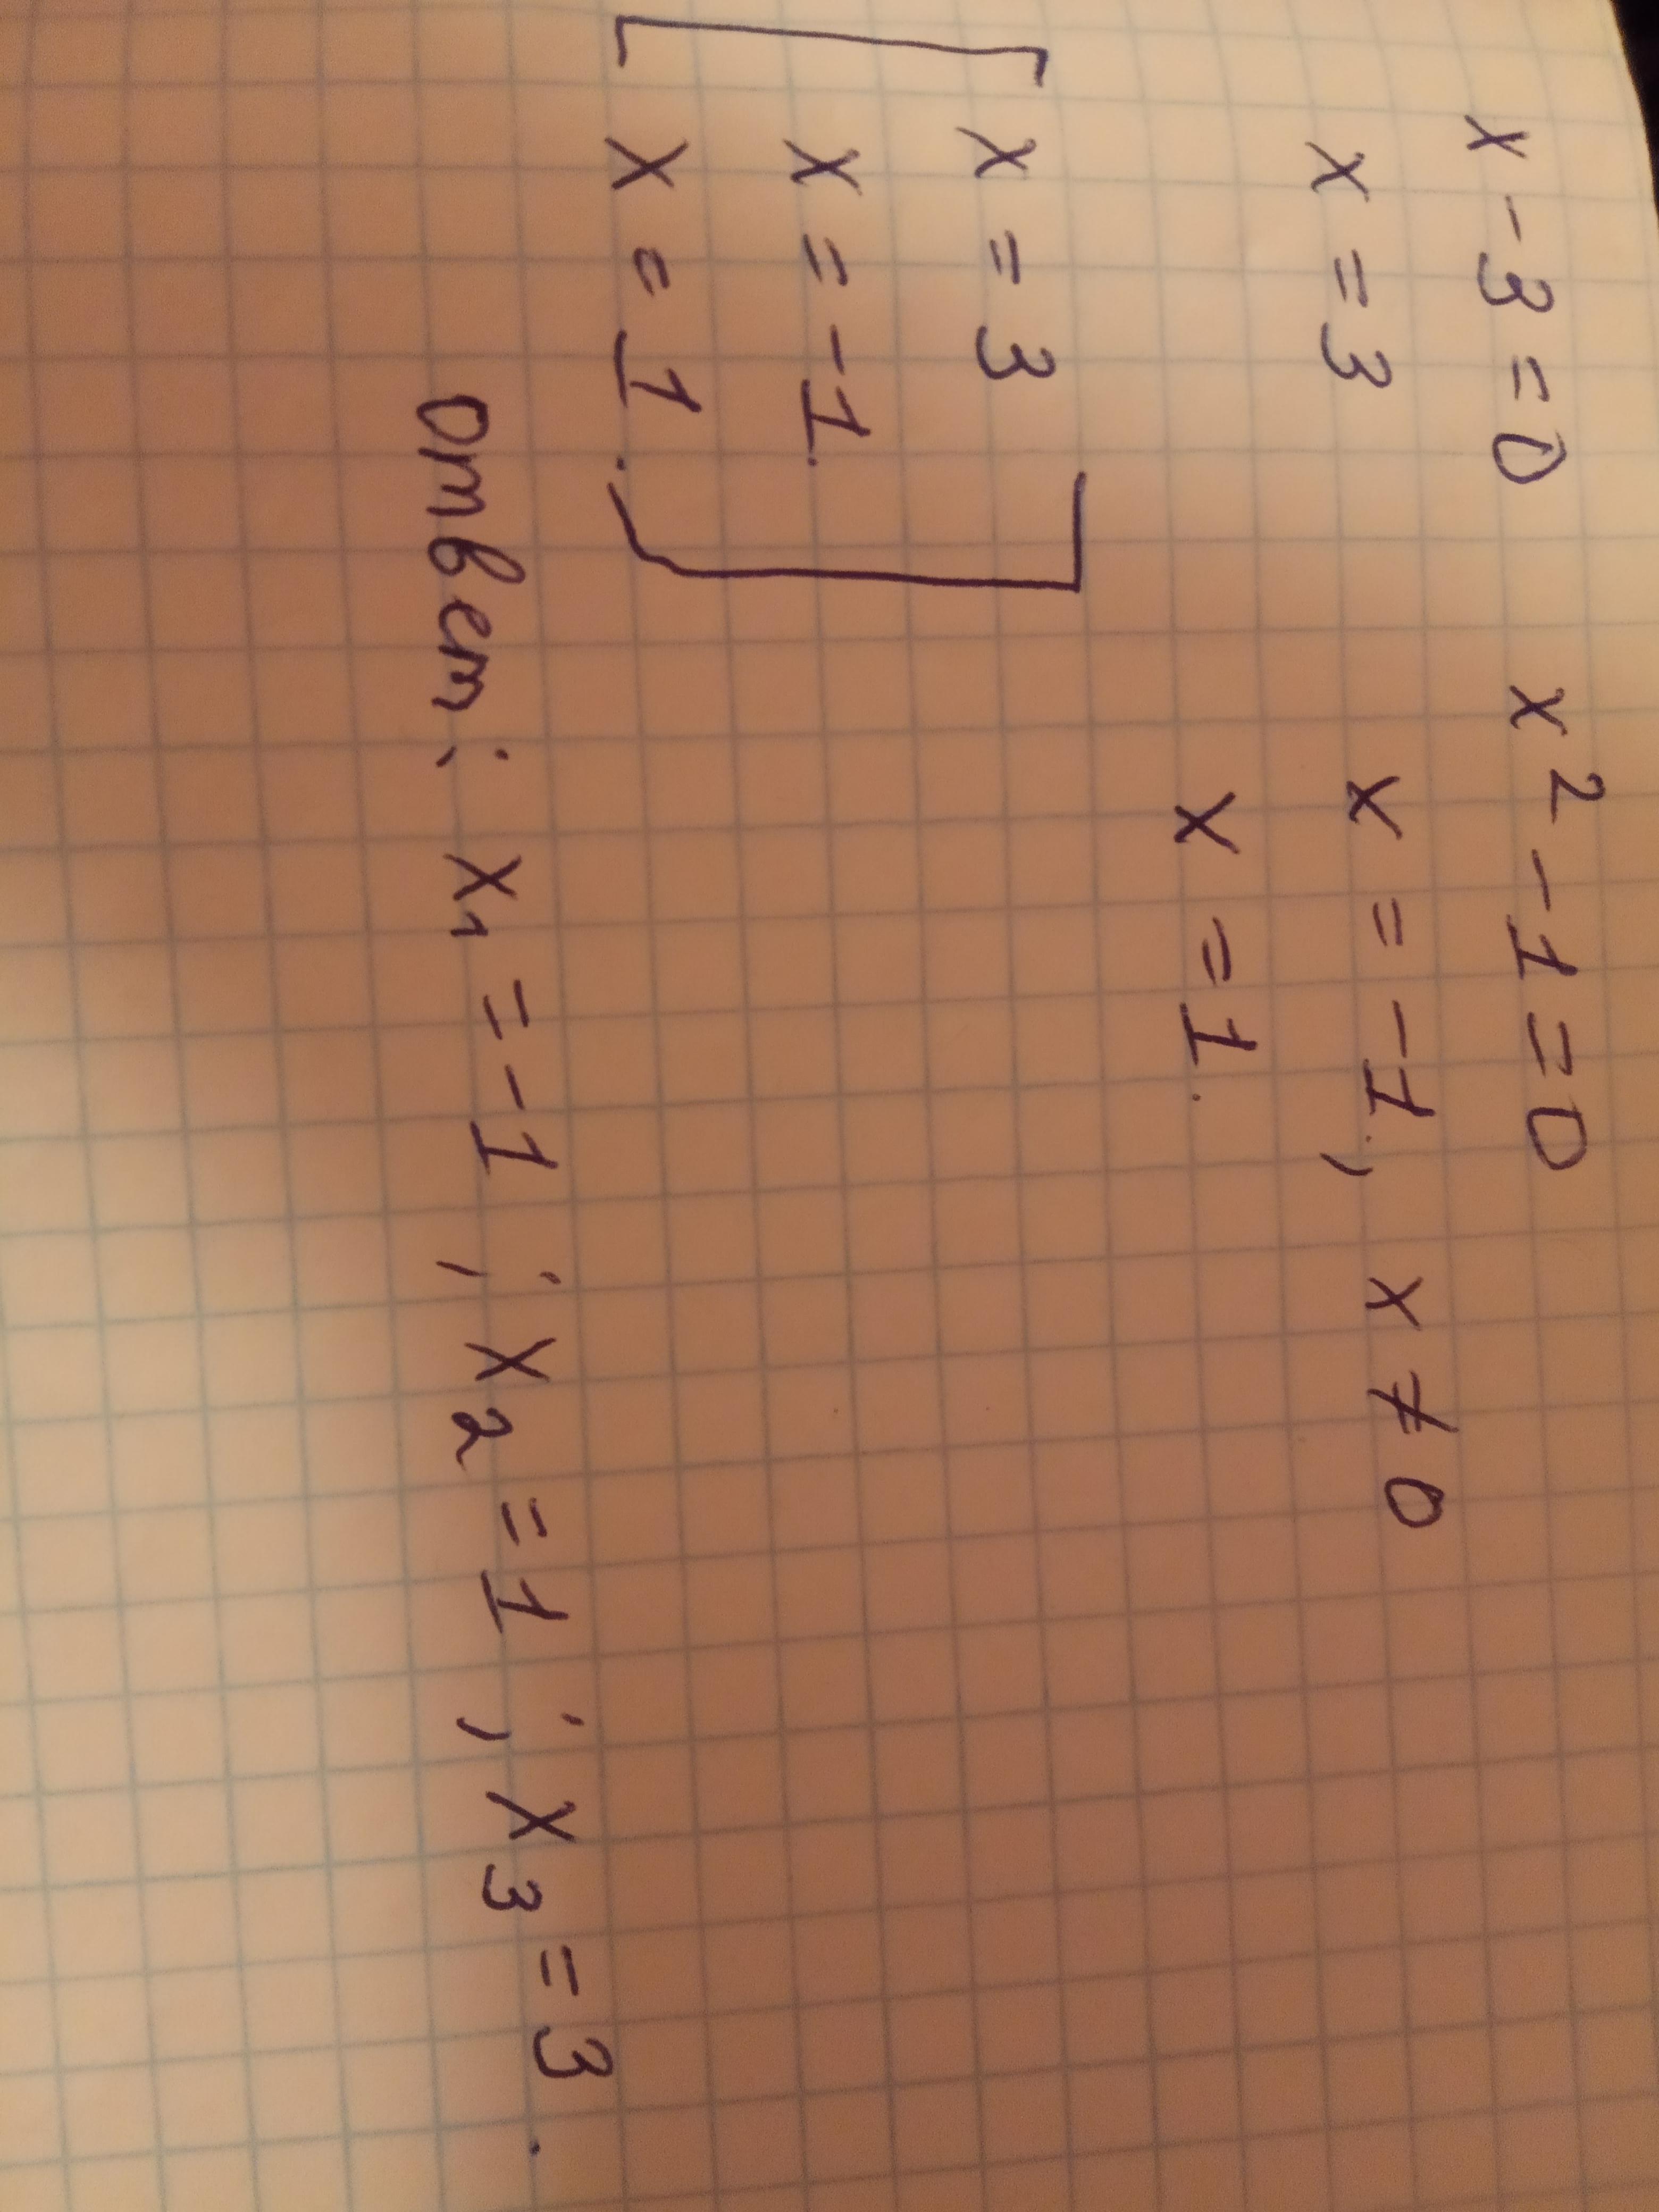 x - 3 = 0 x² - 1 = 0
x = 3 x = -1, x ≠ 0
x = 1.
x = 3
x = -1.
x = 1.
Ответ: x₁ = -1; x₂ = 1; x₃ = 3.